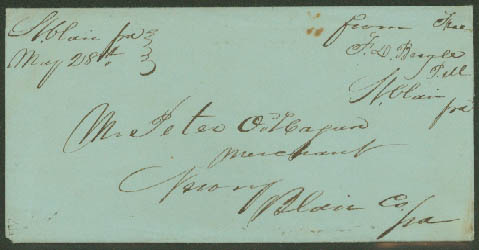 St Clair pa
May 28th
from Free
F. D. Bugle
P M
St Clair
pa
Mr Peter O. Hagan
Merchant
Blair Co
pa